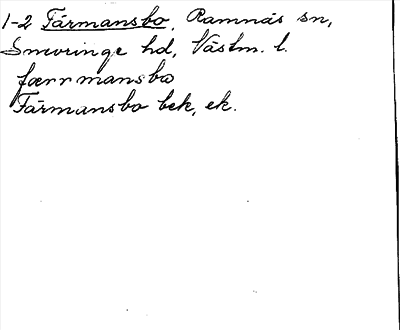 1-2 Färmansbo, Ramnäs sn,
Snevringe hd, Västm. l.
færrmansbo
Färmansbo bek, ek.